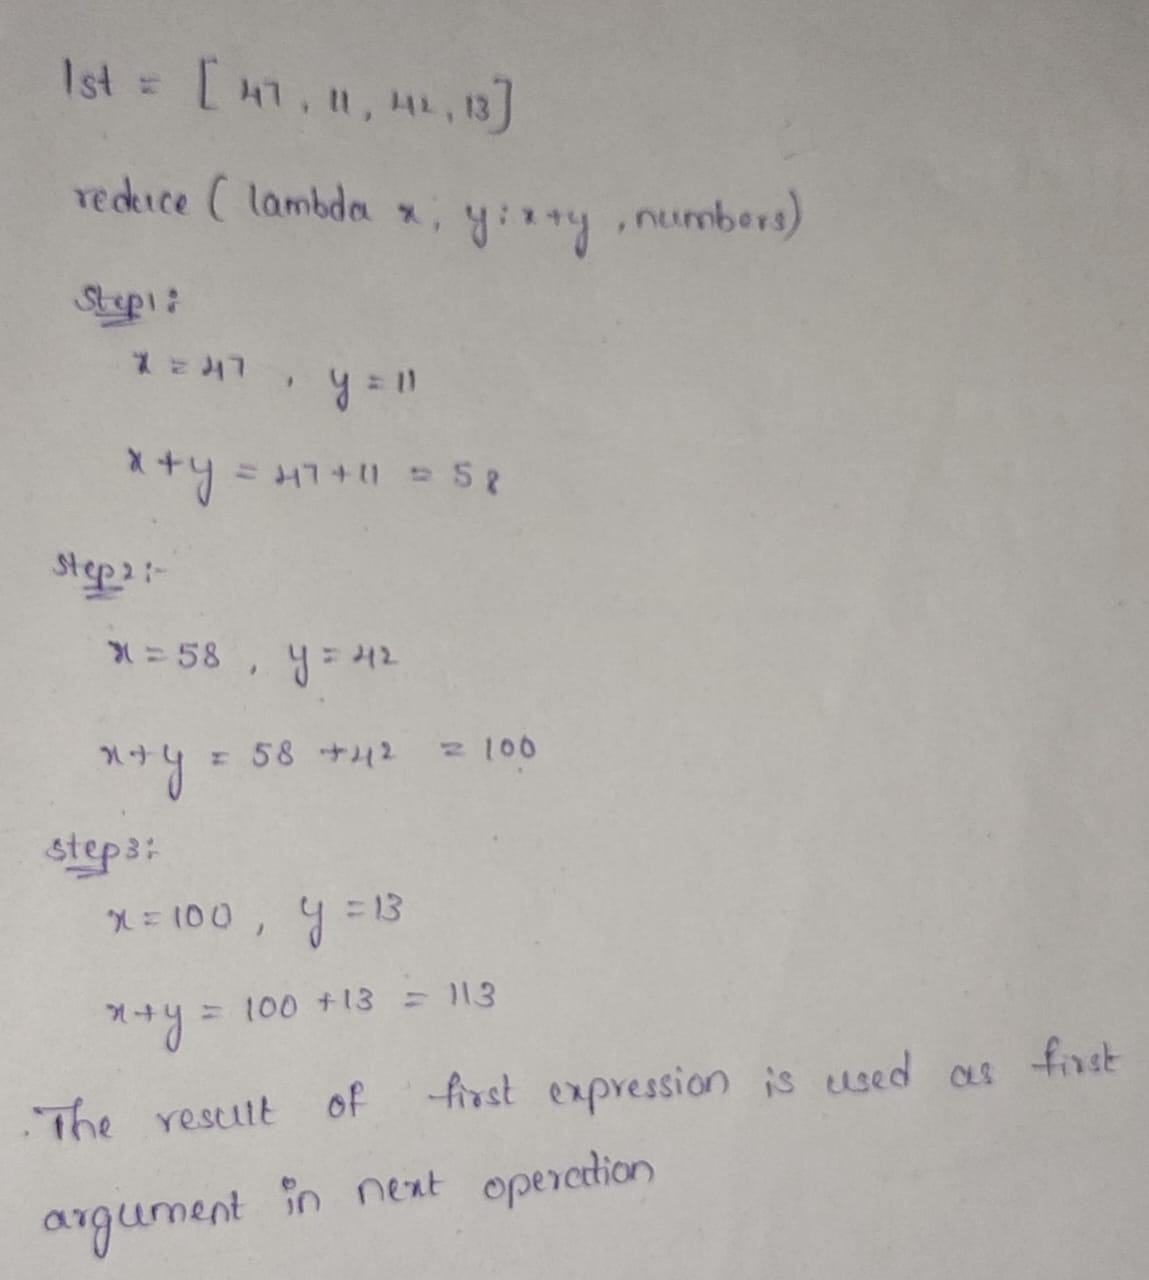 lst = [47, 11, 42, 13]
reduce (lambda x, y: x+y, numbers)
Step1:
x = 47, y = 11
x+y = 47+11 = 58
Step2:-
x = 58, y = 42
x+y = 58 +42 = 100
step3:
x = 100, y = 13
x+y = 100 +13 = 113
The result of first expression is used as first
argument in next operation